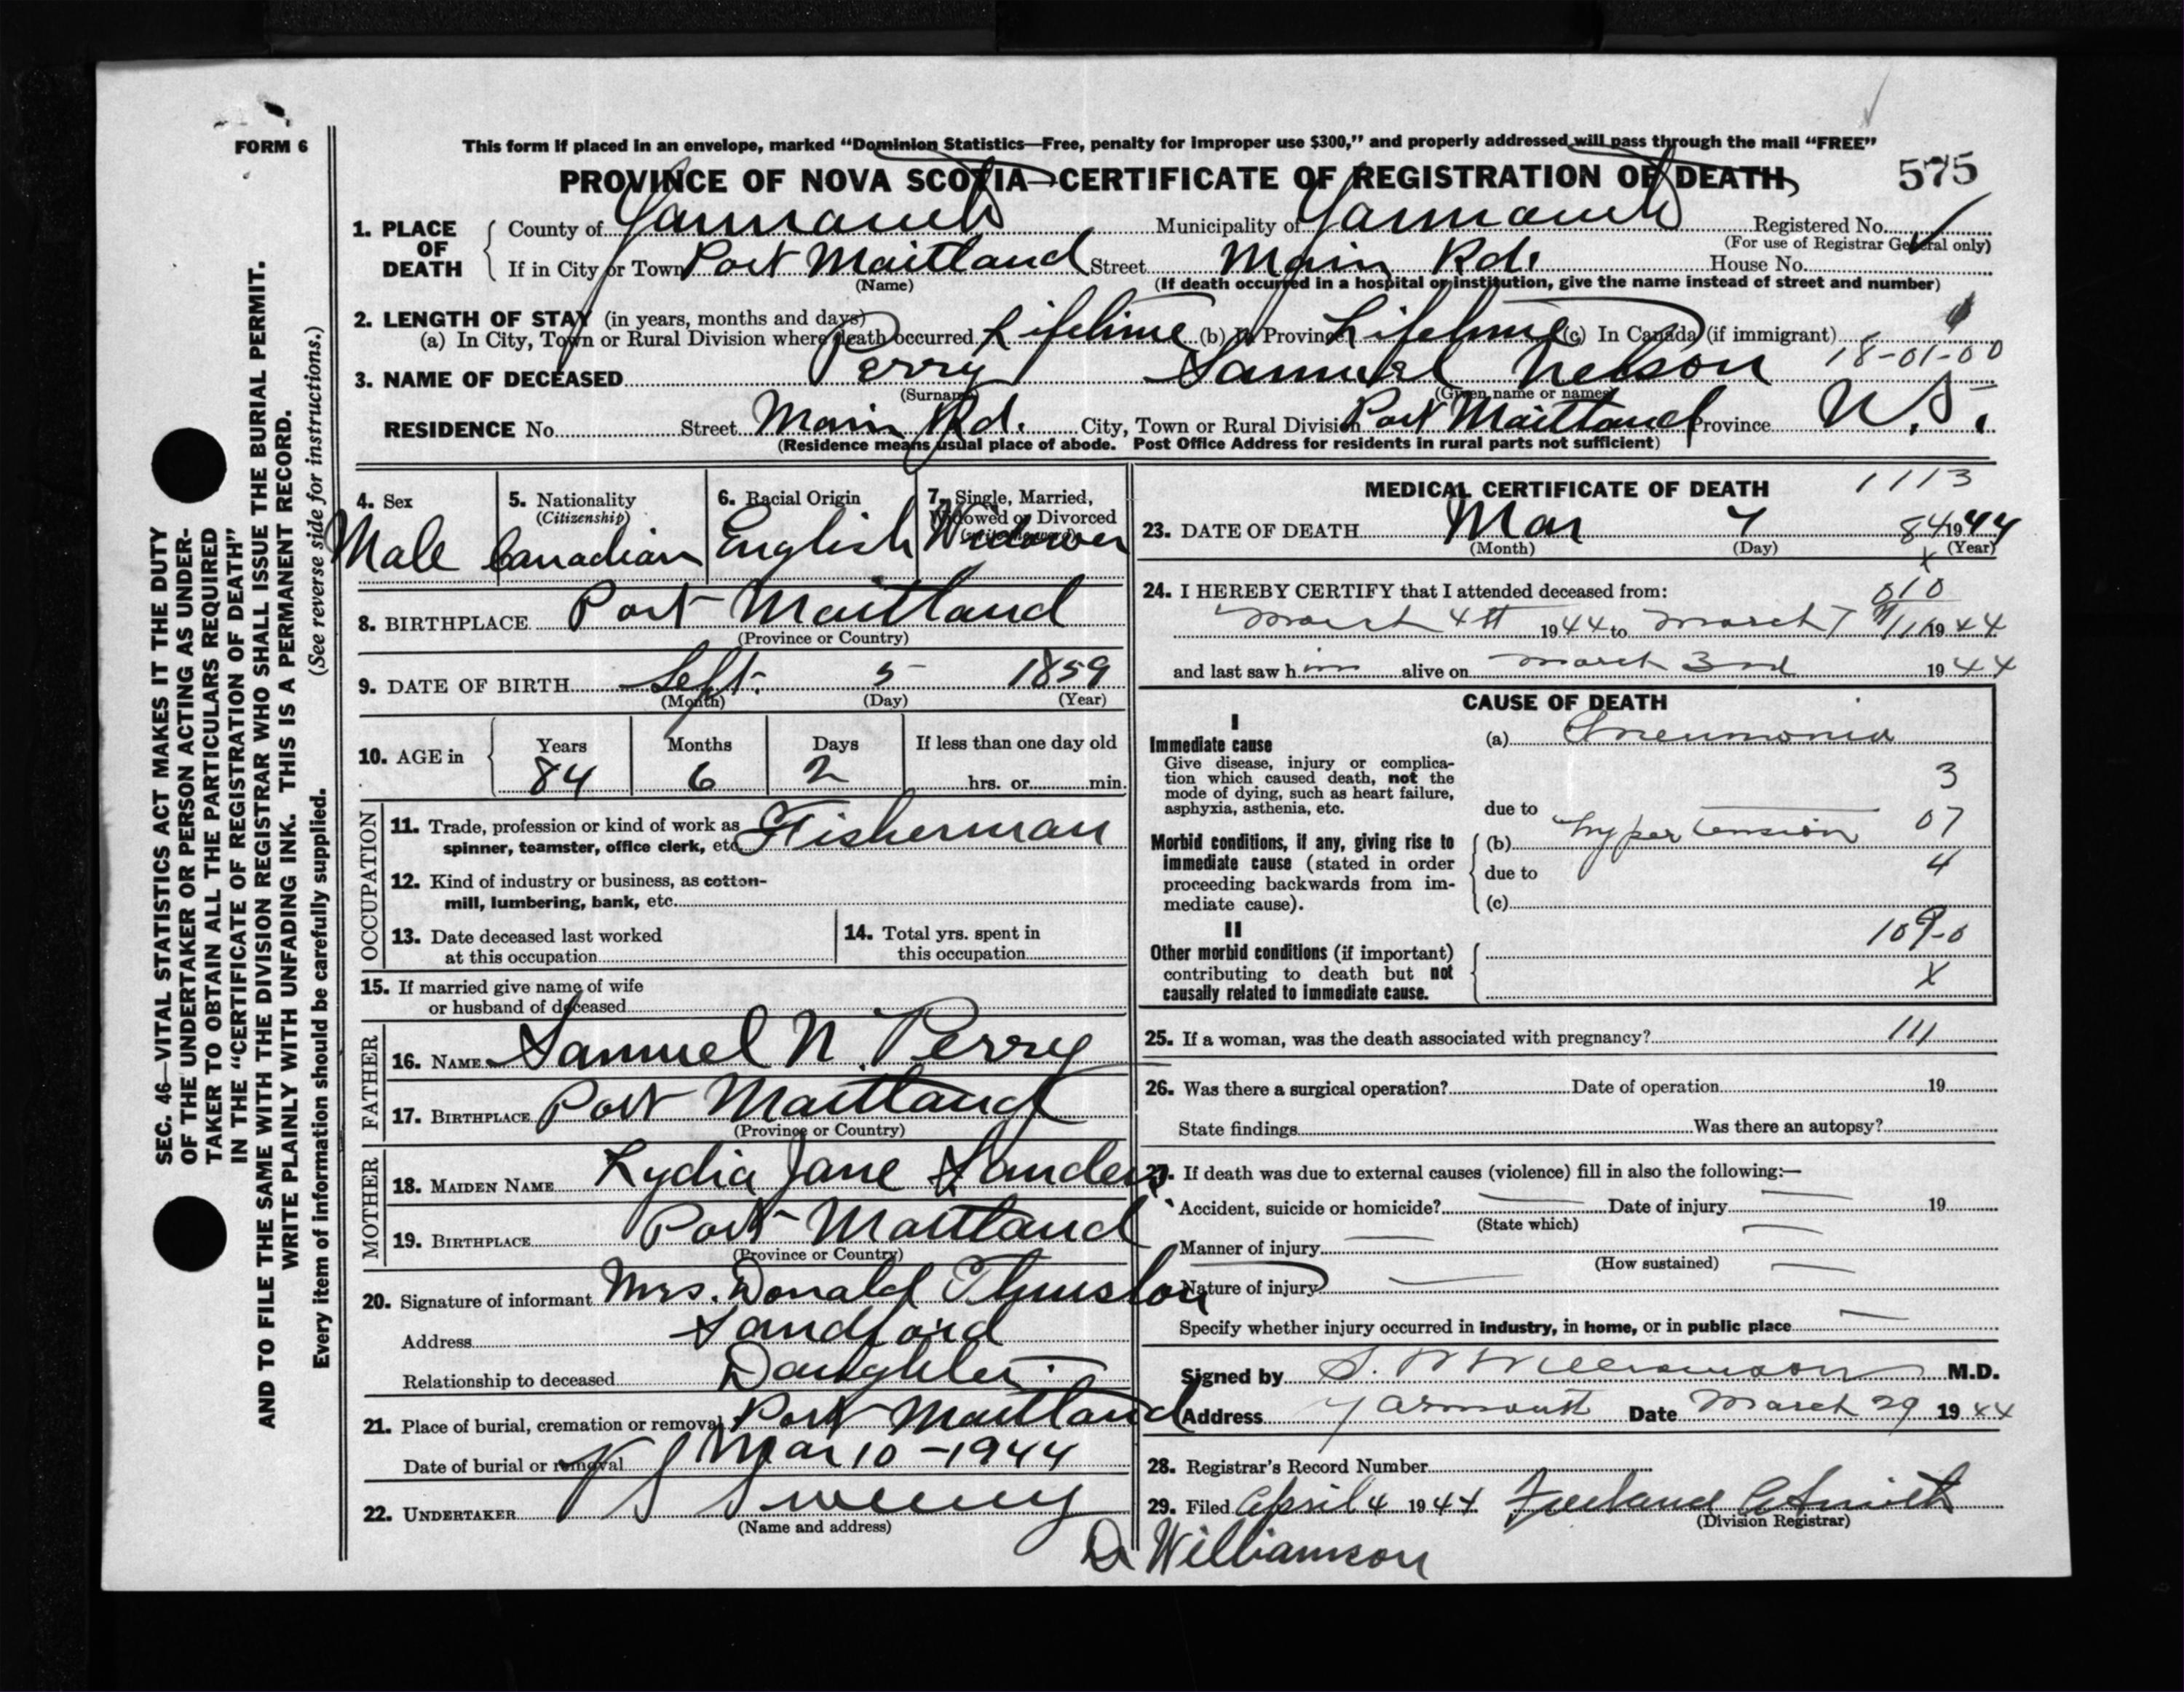 FORM 6
This form if placed in an envelope, marked “Dominion Statistics—Free, penalty for improper use $300,” and properly addressed will pass through the mail “FREE”
PROVINCE OF NOVA SCOTIA—CERTIFICATE OF REGISTRATION OF DEATH 575
1. PLACE OF DEATH
County of Yarmouth Municipality of Yarmouth Registered No.
(For use of Registrar General only)
If in City or Town Port Maitland Street Main Rd. House No.
(Name) (If death occurred in a hospital or institution, give the name instead of street and number)
2. LENGTH OF STAY (in years, months and days)
(a) In City, Town or Rural Division where death occurred Lifetime (b) In Province Lifetime (c) In Canada (if immigrant)
18-01-00
3. NAME OF DECEASED Perry Samuel Nelson
(Surname) (Given name or names)
RESIDENCE No. Street Main Rd. City, Town or Rural Division Port Maitland Province N.S.
(Residence means usual place of abode. Post Office Address for residents in rural parts not sufficient)
4. Sex Male
5. Nationality (Citizenship) Canadian
6. Racial Origin English
7. Single, Married, Widowed or Divorced Widower
8. BIRTHPLACE Port Maitland
(Province or Country)
9. DATE OF BIRTH Sept. 5 1859
(Month) (Day) (Year)
10. AGE in Years Months Days If less than one day old
84 6 2 hrs. or min.
OCCUPATION
11. Trade, profession or kind of work as
spinner, teamster, office clerk, etc. Fisherman
12. Kind of industry or business, as cotton-
mill, lumbering, bank, etc.
13. Date deceased last worked
at this occupation
14. Total yrs. spent in
this occupation
15. If married give name of wife
or husband of deceased
FATHER
16. NAME Samuel N. Perry
17. BIRTHPLACE Port Maitland
(Province or Country)
MOTHER
18. MAIDEN NAME Lydia Jane Landers
19. BIRTHPLACE Port Maitland
(Province or Country)
20. Signature of informant Mrs. Donald Thurston
Address Sandford
Relationship to deceased Daughter
21. Place of burial, cremation or removal Port Maitland
Date of burial or removal Mar 10 - 1944
22. UNDERTAKER V S Sweeny
(Name and address)
MEDICAL CERTIFICATE OF DEATH 1113
23. DATE OF DEATH Mar 7 84 1944
(Month) (Day) (Year)
x
24. I HEREBY CERTIFY that I attended deceased from: 010
March 4th 1944 to March 7 1944
and last saw him alive on March 3rd 1944
CAUSE OF DEATH
I
Immediate cause
Give disease, injury or complica-
tion which caused death, not the
mode of dying, such as heart failure,
asphyxia, asthenia, etc.
(a) Pneumonia
3
due to
Morbid conditions, if any, giving rise to
immediate cause (stated in order
proceeding backwards from im-
mediate cause).
(b) hypertension 07
due to 4
(c)
II
Other morbid conditions (if important)
contributing to death but not
causally related to immediate cause.
109-0
X
25. If a woman, was the death associated with pregnancy? 111
26. Was there a surgical operation? Date of operation 19
State findings Was there an autopsy?
27. If death was due to external causes (violence) fill in also the following:—
Accident, suicide or homicide? Date of injury 19
(State which)
Manner of injury
(How sustained)
Nature of injury
Specify whether injury occurred in industry, in home, or in public place
Signed by Williamson M.D.
Address Yarmouth Date March 29 1944
28. Registrar's Record Number
29. Filed April 4 1944 Freeland C Smith
(Division Registrar)
Dr Williamson
SEC. 46—VITAL STATISTICS ACT MAKES IT THE DUTY
OF THE UNDERTAKER OR PERSON ACTING AS UNDER-
TAKER TO OBTAIN ALL THE PARTICULARS REQUIRED
IN THE “CERTIFICATE OF REGISTRATION OF DEATH”
AND TO FILE THE SAME WITH THE DIVISION REGISTRAR WHO SHALL ISSUE THE BURIAL PERMIT.
WRITE PLAINLY WITH UNFADING INK. THIS IS A PERMANENT RECORD.
Every item of information should be carefully supplied. (See reverse side for instructions.)